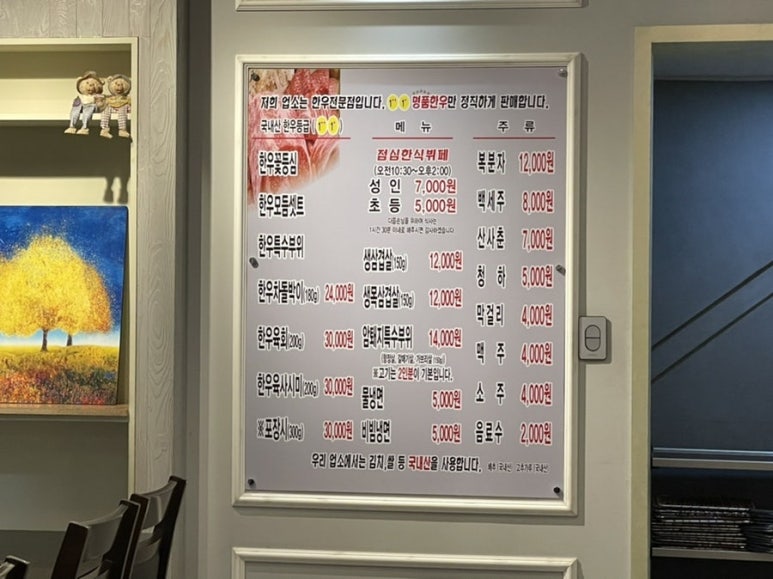 저희 업소는 한우전문점입니다. 명품한우만 정직하게 판매합니다.
국내산 한우등급 ( )
한우꽃등심
한우모듬셋트
한우특수부위
한우차돌박이(180g) 24,000원
한우육회(200g) 30,000원
한우육사시미(200g) 30,000원
※포장시(300g) 30,000원
메 뉴
점심한식뷔페
(오전10:30~오후2:00)
성 인 7,000원
초 등 5,000원
다음손님을 위하여 식사는
1시간 30분 이내로 해주시면 감사하겠습니다
생삼겹살(150g) 12,000원
생목삼겹살(150g) 12,000원
암퇘지특수부위 14,000원
(항정살, 갈매기살, 가브리살 150g)
※고기는 2인분이 기본입니다.
물냉면 5,000원
비빔냉면 5,000원
주 류
복분자 12,000원
백세주 8,000원
산사춘 7,000원
청 하 5,000원
막걸리 4,000원
맥 주 4,000원
소 주 4,000원
음료수 2,000원
우리 업소에서는 김치,쌀 등 국내산을 사용합니다. 배추 (국내산) 고추가루 (국내산)